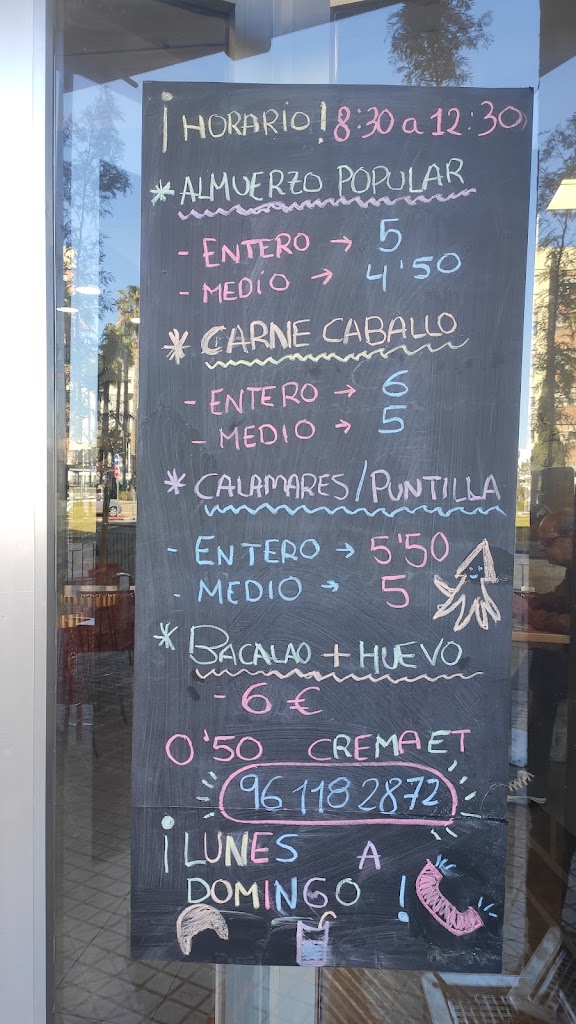 ¡HORARIO! 8:30 a 12:30
* ALMUERZO POPULAR
- ENTERO → 5
- MEDIO → 4'50
* CARNE CABALLO
- ENTERO → 6
- MEDIO → 5
* CALAMARES/PUNTILLA
- ENTERO → 5'50
- MEDIO → 5
* BACALAO + HUEVO
- 6 €
0'50 CREMAET
96 118 2872
¡LUNES A
DOMINGO!